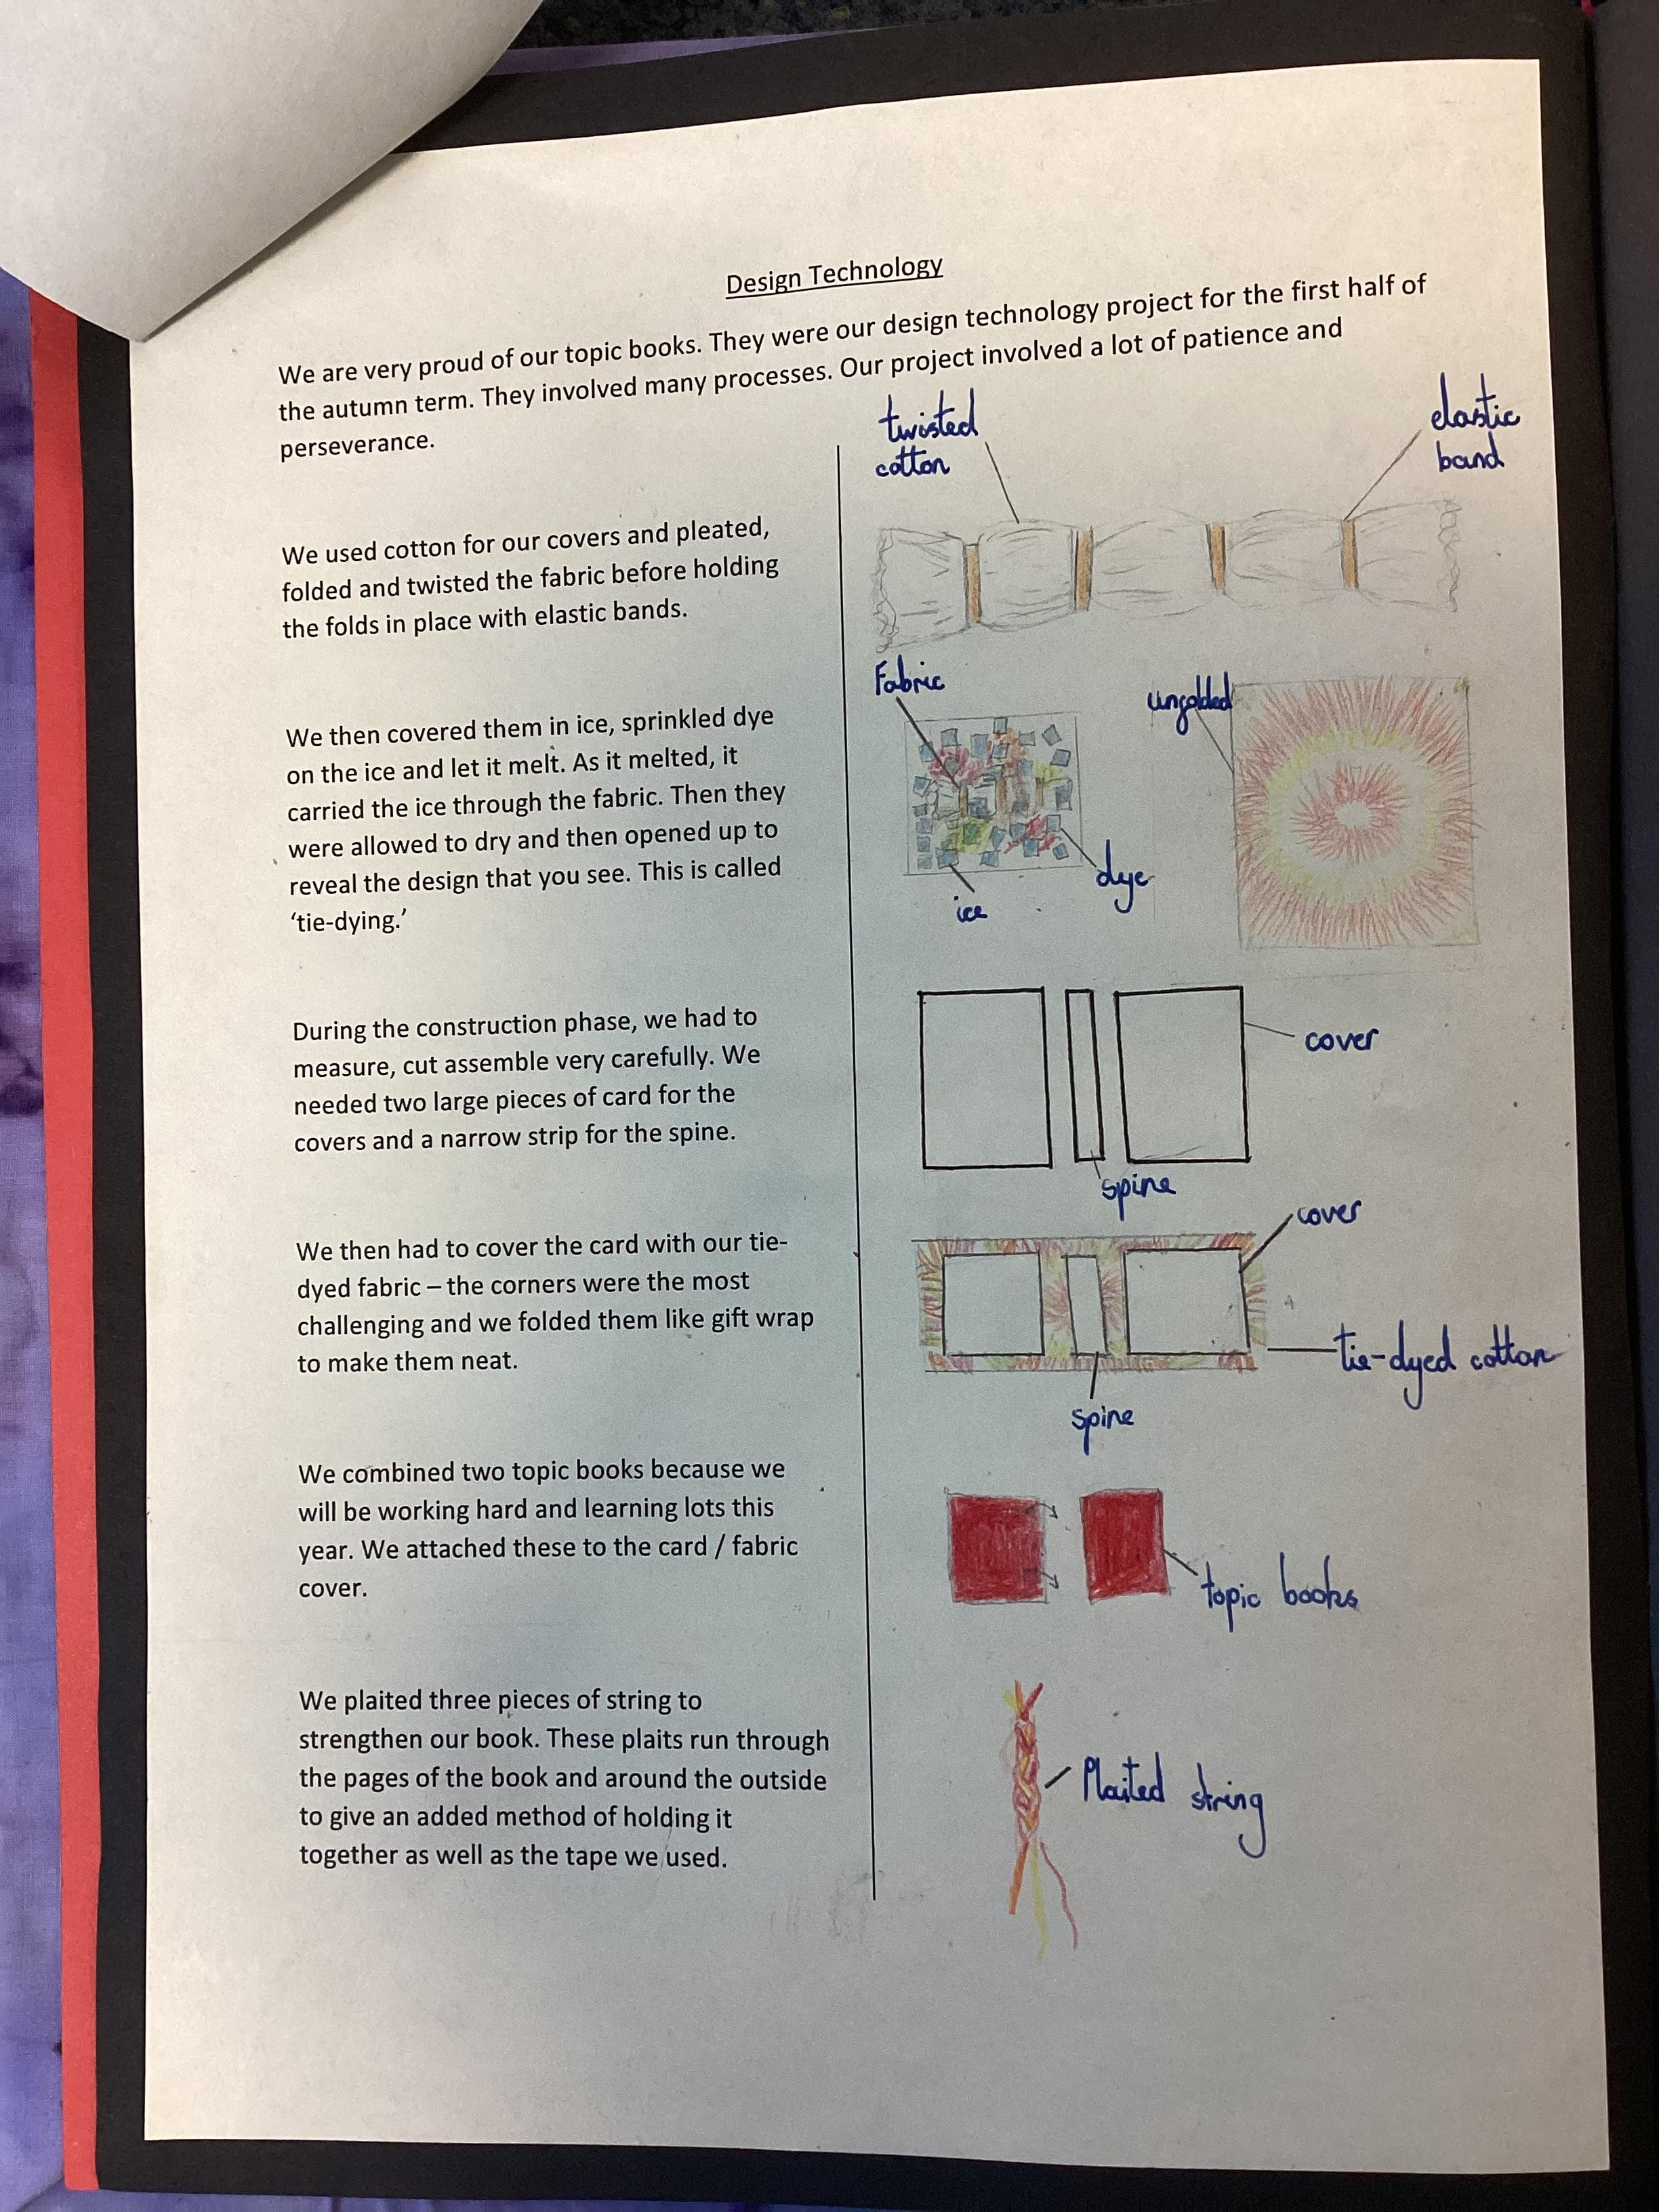 Design Technology
We are very proud of our topic books. They were our design technology project for the first half of
the autumn term. They involved many processes. Our project involved a lot of patience and
perseverance.
twisted
cotton
elastic
band
We used cotton for our covers and pleated,
folded and twisted the fabric before holding
the folds in place with elastic bands.
Fabric
unfolded
We then covered them in ice, sprinkled dye
on the ice and let it melt. As it melted, it
carried the ice through the fabric. Then they
were allowed to dry and then opened up to
reveal the design that you see. This is called
‘tie-dying.’
dye
ice
During the construction phase, we had to
measure, cut assemble very carefully. We
needed two large pieces of card for the
covers and a narrow strip for the spine.
cover
spine
We then had to cover the card with our tie-
dyed fabric – the corners were the most
challenging and we folded them like gift wrap
to make them neat.
cover
tie-dyed cotton
spine
We combined two topic books because we
will be working hard and learning lots this
year. We attached these to the card / fabric
cover.
topic books
We plaited three pieces of string to
strengthen our book. These plaits run through
the pages of the book and around the outside
to give an added method of holding it
together as well as the tape we used.
Plaited string